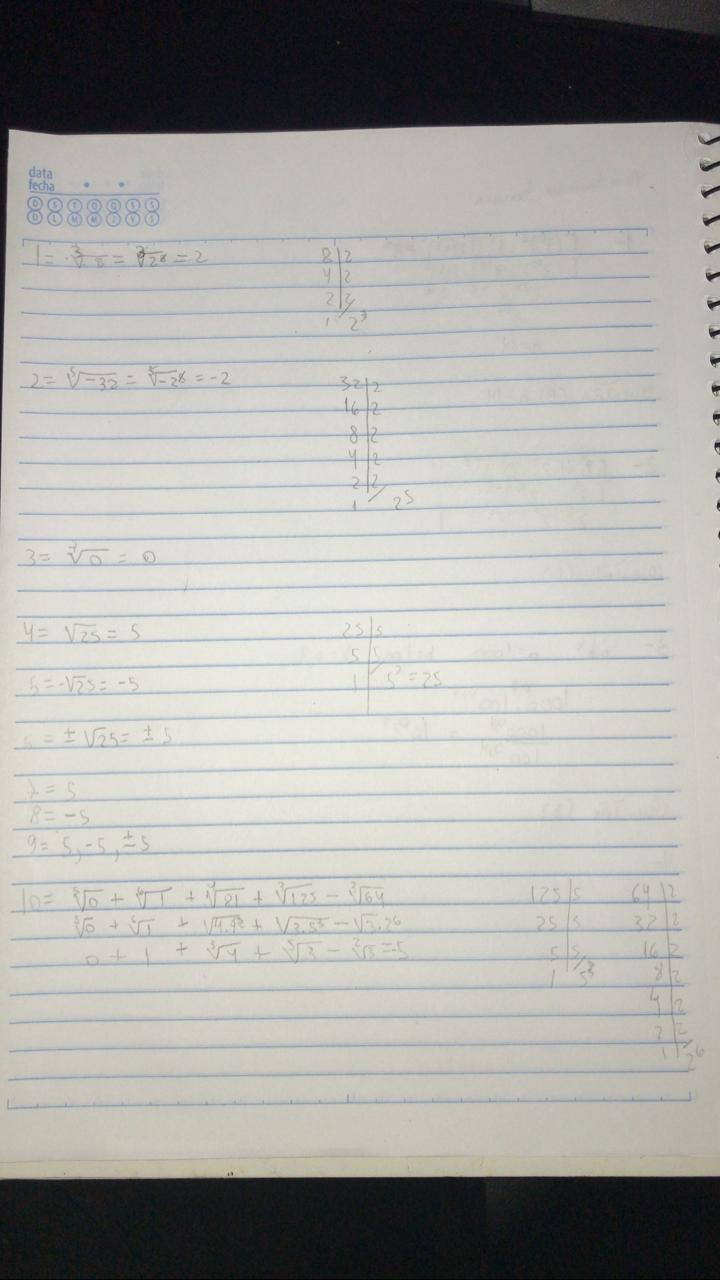 data
fecha
D S T Q Q S S
D L M M J V S
1 = ∛8 = ∛2⁸ = 2
8|2
4|2
2|2
1 / 2³
2 = ⁵√-32 = ⁵√-2⁸ = -2
32|2
16|2
8|2
4|2
2|2
1 / 2⁵
3 = ⁷√0 = 0
4 = √25 = 5
25|5
5|5
1| 5² = 25
5 = -√25 = -5
6 = ± √25 = ± 5
7 = 5
8 = -5
9 = 5, -5, ±5
10 = ⁵√0 + ⁶√1 + ⁴√81 + ∛125 - ∛64
⁵√0 + ⁶√1 + √4.9² + √3.5³ - √3.2⁶
0 + 1 + ∛4 + ⁵√3 - ²√3 = -5
125|5
25|5
5|5
1 / 5³
64|2
32|2
16|2
8|2
4|2
2|2
1 / 2⁶